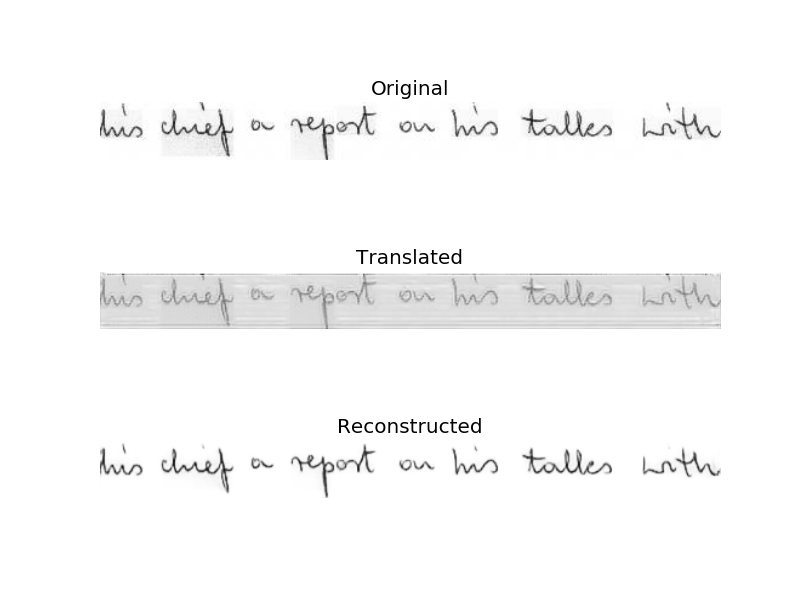 Original
his chief a report on his talks with
Translated
his chief a report on his talks with
Reconstructed
his chief a report on his talks with